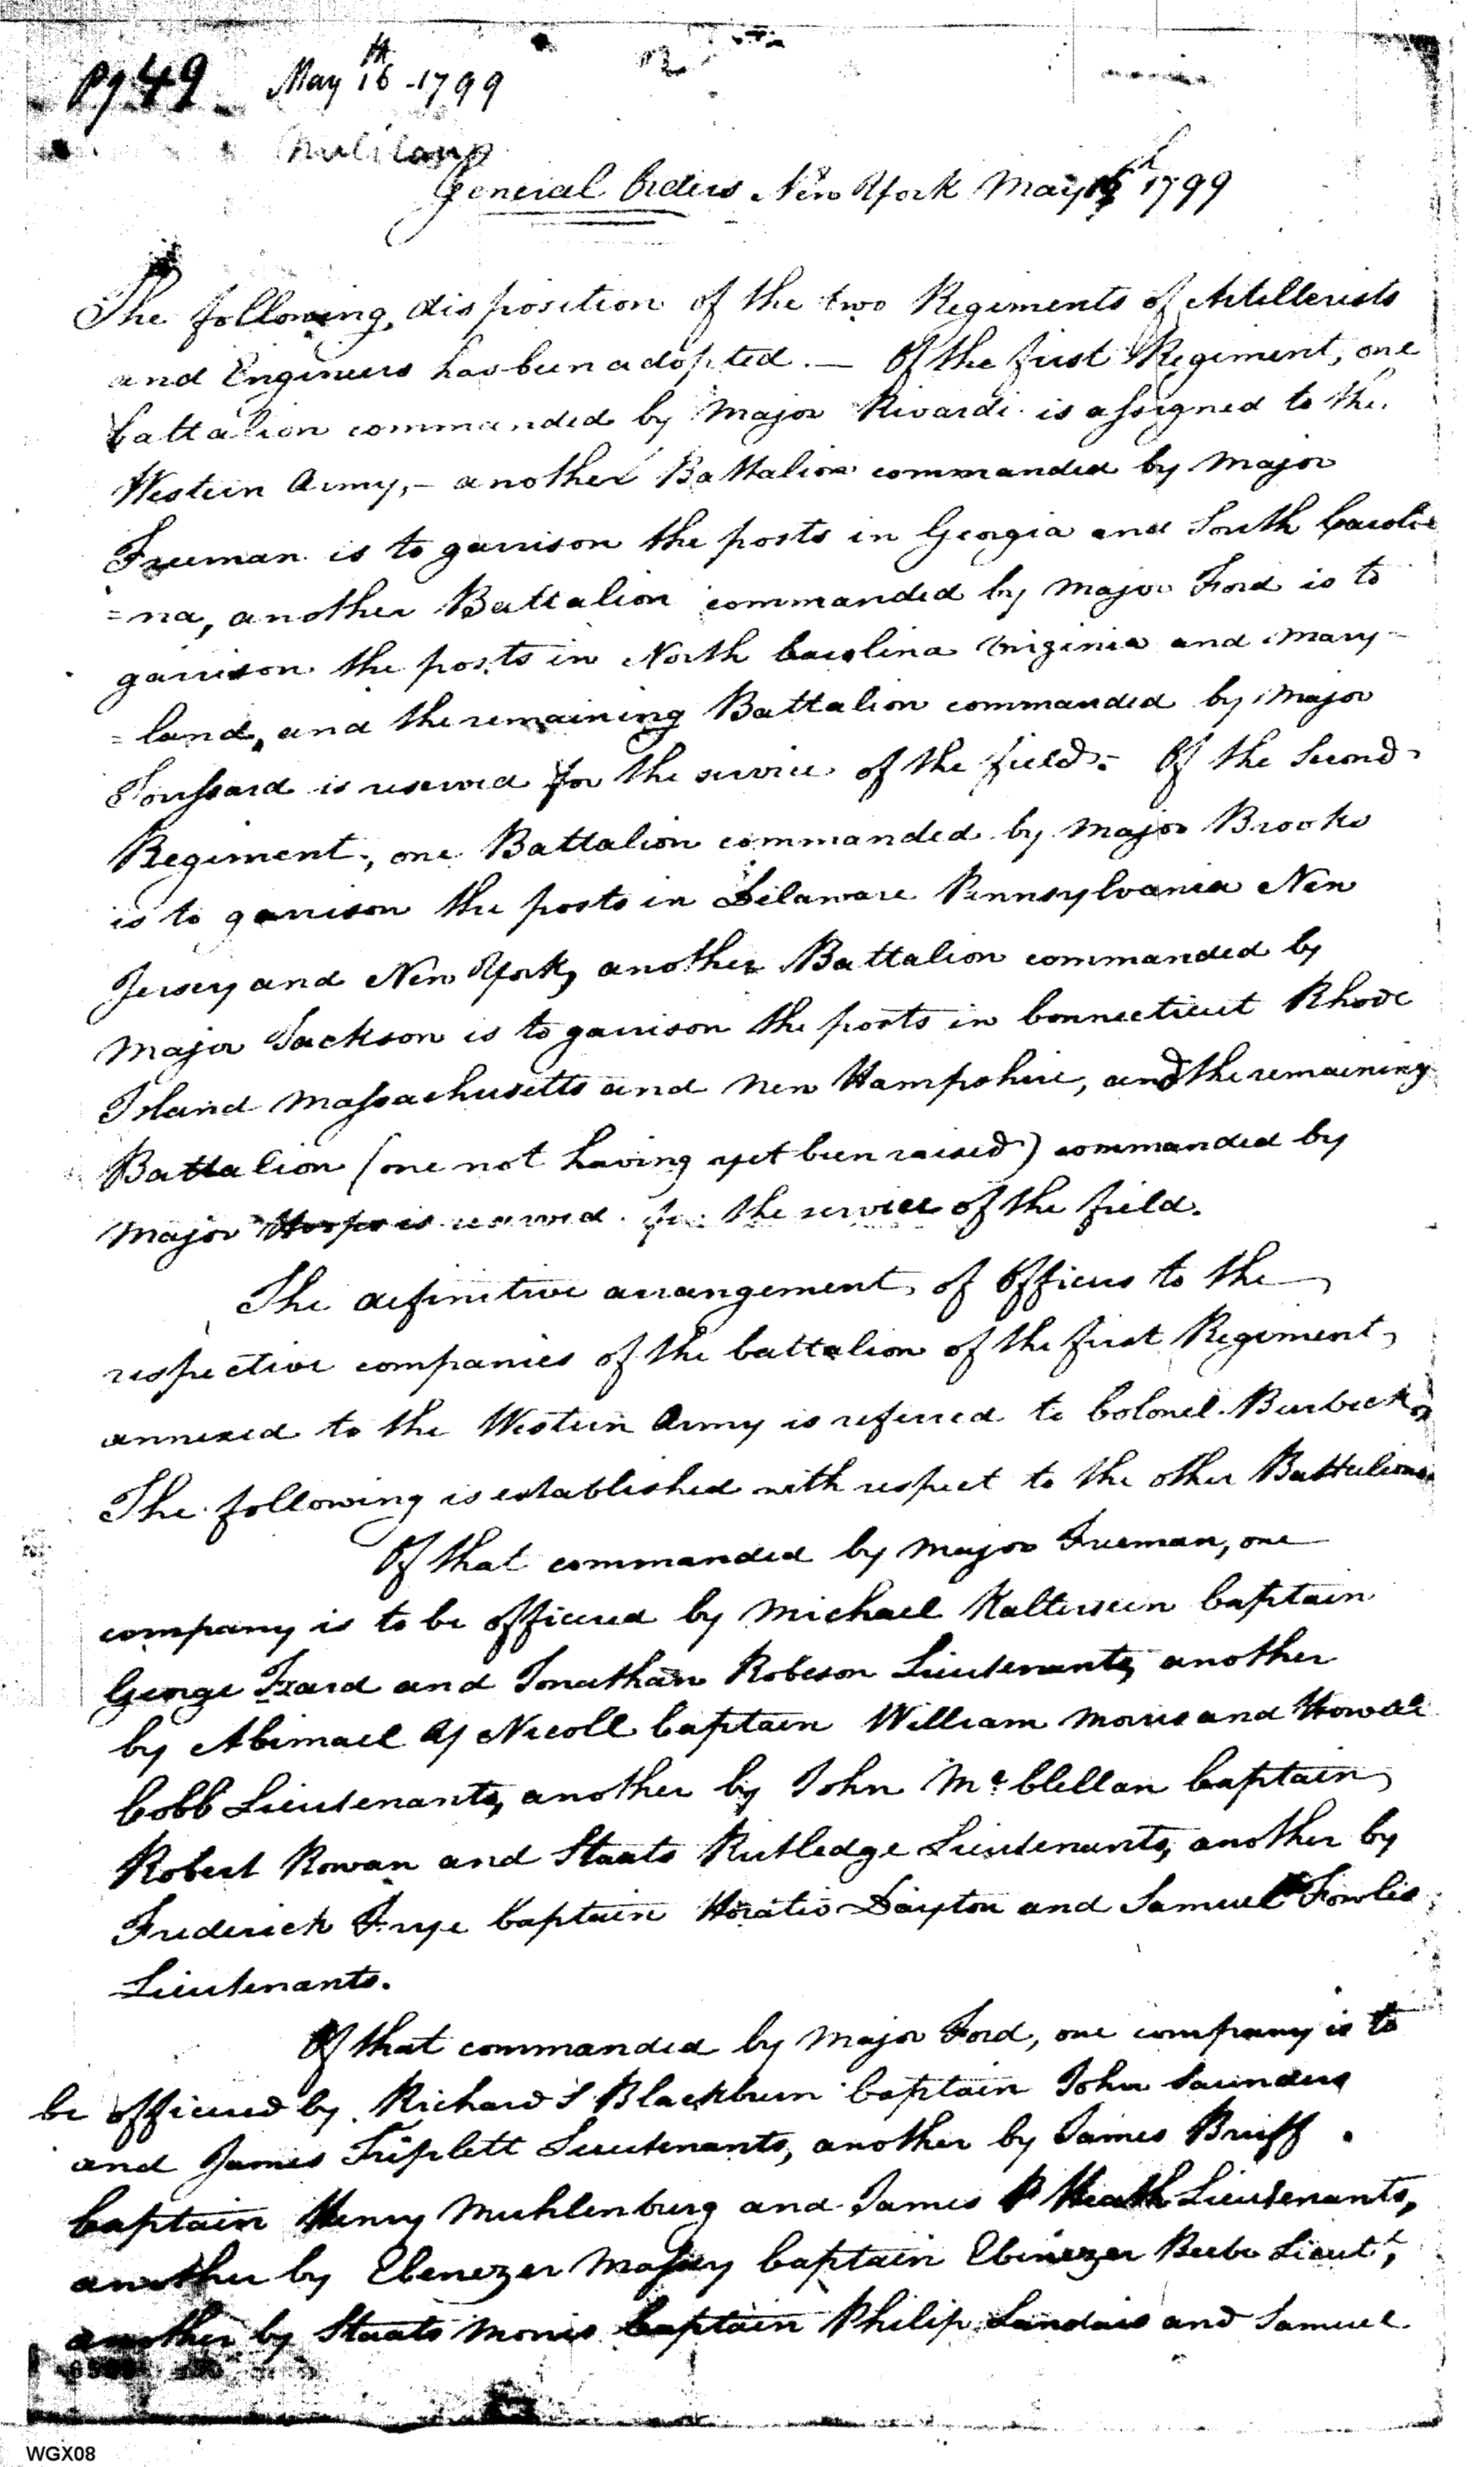 Pg 49 May 16th - 1799
General Orders New York May 16th 1799
The following disposition of the two Regiments of Artillerists
and Engineers has been adopted. — Of the first Regiment, one
battalion commanded by Major Rivardi is assigned to the
Western Army, - another Battalion commanded by Major
Freeman is to garrison the posts in Georgia and South Caroli
=na, another Battalion commanded by Major Ford is to
garrison the posts in North Carolina Virginia and Mary-
=land, and the remaining Battalion commanded by Major
Toussard is reserved for the service of the field. - Of the Second
Regiment, one Battalion commanded by Major Brooks
is to garrison the posts in Delaware Pennsylvania New
Jersey and New York, another Battalion commanded by
Major Jackson is to garrison the posts in Connecticut Rhode
Island Massachusetts and New Hampshire, and the remaining
Battalion (one not having yet been raised) commanded by
Major Hoops is reserved for the service of the field.
The definitive arrangement of Officers to the
respective companies of the battalion of the first Regiment
annexed to the Western Army is referred to Colonel Burbeck,
The following is established with respect to the other Battalions
Of that commanded by Major Freeman, one
company is to be officered by Michael Kalteisen Captain
George Izard and Jonathan Robeson Lieutenants, another
by Abimael Y Nicoll Captain William Morris and Howell
Cobb Lieutenants, another by John Mc Clellan Captain
Robert Rowan and Staats Rutledge Lieutenants, another by
Frederick Frye Captain Horatio Dayton and Samuel Fowles
Lieutenants.
Of that commanded by Major Ford, one company is to
be officered by Richard S Blackburn Captain John Saunders
and James Triplett Lieutenants, another by James Bruff
Captain Henry Muhlenburg and James P Heath Lieutenants,
another by Ebenezer Massey Captain Ebenezer Beebe Lieutt,
another by Staats Morris Captain Philip Landais and Samuel
WGX08